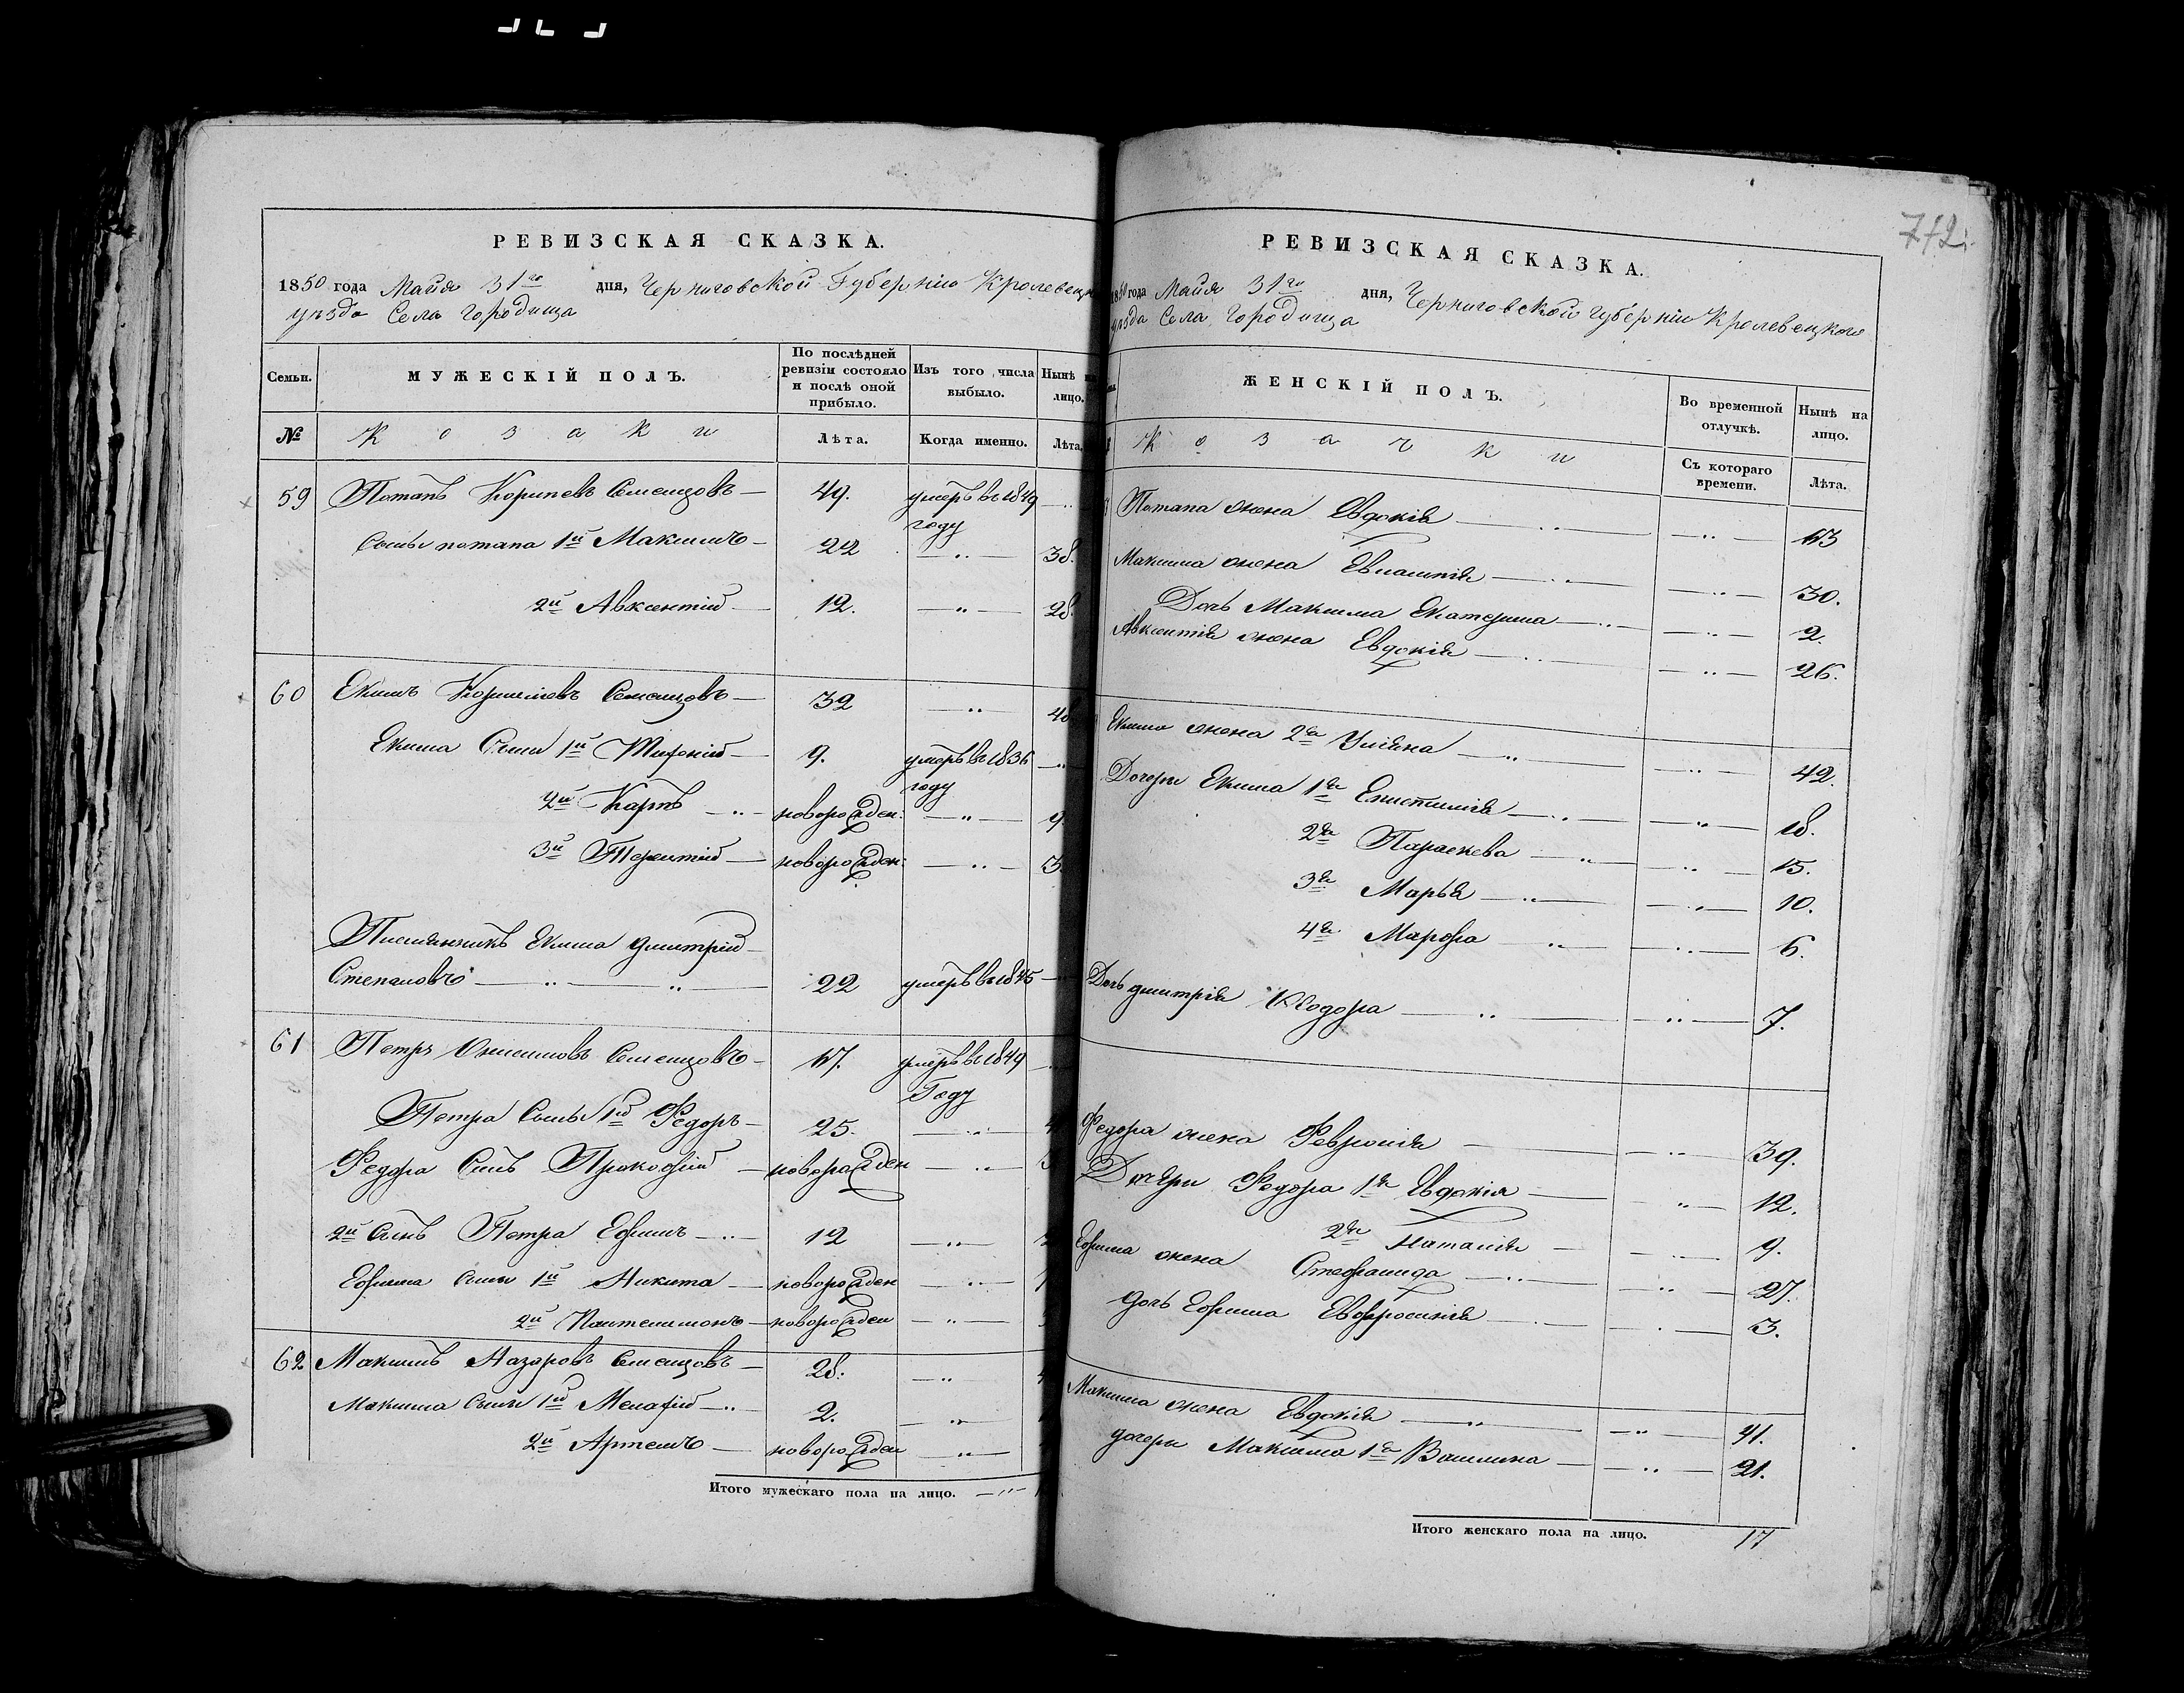 РЕВИЗСКАЯ СКАЗКА.
1850 года Майя 31го дня, Черниговской Губерніи Кролевецк
уѣзда Села Городища
Семьи.
МУЖЕСКІЙ ПОЛЪ.
По послѣдней ревизіи состояло и послѣ оной прибыло.
Изъ того числа выбыло.
Нынѣ на лицо.
№
Козаки
Лѣта.
Когда именно.
Лѣта.
59 Потапъ Семенцовъ — 49. умеръ въ 1849 году
Сыны потапа 1й Максимъ — 22 — " — 38.
2й Авксентій — 12. — " — 28.
60 Екимъ Семенцовъ — 32 — " —
Екима Сыны 1й — 9. умеръ въ 1836 году
2й Карпъ — новорожден: — " — 9
3й Терентій — новорожден: — " — 3.
Племянникъ Екима Дмитрій
Степановъ — 22 умеръ въ 1845
61 Петръ Семенцовъ — умеръ въ 1849 Году
Петра Сыны 1й Федоръ — 25. — " —
Федора Сынъ Прокофій — новорожден — " —
2й Сынъ Петра Ефимъ — 12 — " —
Ефима Сыны 1й Никита — новорожден — " —
2й Пантелимонъ — новорожден — " —
62 Максимъ Назаровъ Семенцовъ — 28. — " —
Максима Сыны 1й — 2. — " —
2й Артемъ — новорожден — " —
Итого мужескаго пола на лицо. — " —
712.
РЕВИЗСКАЯ СКАЗКА.
1850 года Майя 31го дня, Черниговской губерніи Кролевецкого
уѣзда Села Городища
ЖЕНСКІЙ ПОЛЪ.
Во временной отлучкѣ.
Нынѣ на лицо.
Козачки
Съ котораго времени.
Лѣта.
Потапа жена Евдокія — " —
Максима жена — " — 30.
Дочь Максима Екатерина — " — 2.
Авксентія жена Евдокія — " — 26.
Екима жена 2я Уліяна — " — 42.
Дочери Екима 1я — " — 18.
2я Параскева — " — 15.
3я Марья — " — 10.
4я Марфа — " — 6.
Дочь Дмитрія Ѳеодора — " — 7.
Федора жена Февронія — " — 39.
Дочери Федора 1я Евдокія — " — 12.
2я Наталія — " — 9.
Ефима жена Стефанида — " — 27.
Дочь Ефима Евфросинія — " — 3.
Максима жена Евдокія — " — 41.
дочери Максима 1я Василина — " — 21.
Итого женскаго пола на лицо. 17